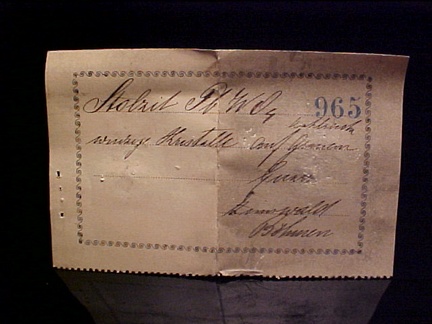 Stolzit Pb W O4 965
winzige Kristalle auf grauem
Quarz
Zinnwald
Böhmen